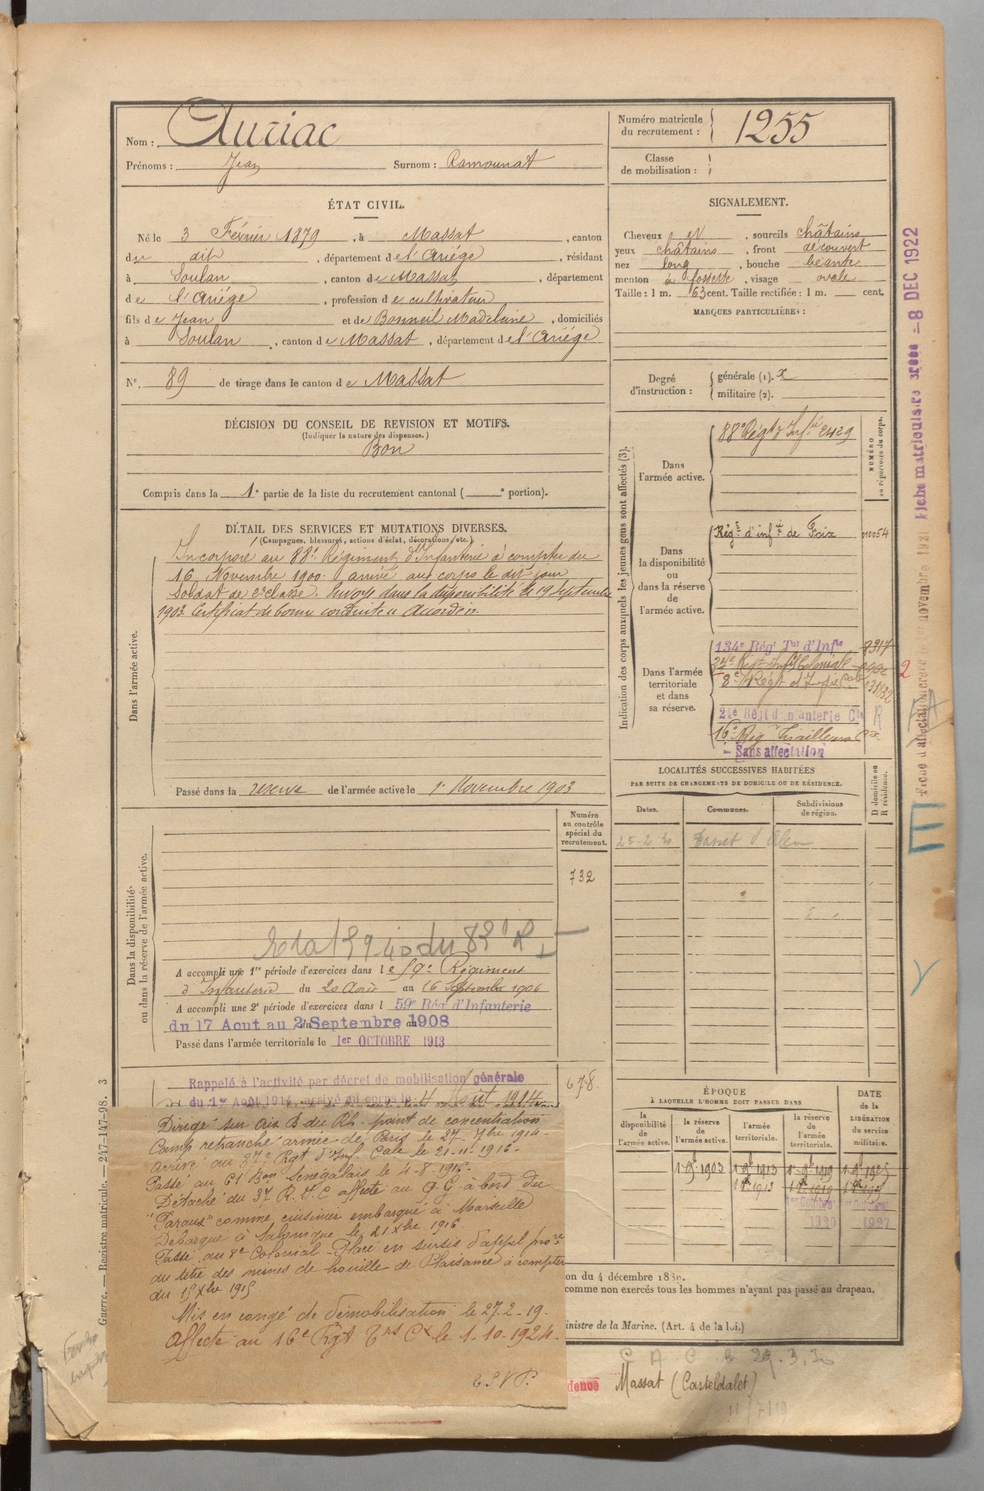 Nom : Auriac
Prénoms : Jean Surnom : Ramounat
Numéro matricule du recrutement : 1255
Classe de mobilisation :
ÉTAT CIVIL.
Né le 3 Février 1879, à Massat, canton
du dit, département de l'Ariége, résidant
à Soulan, canton de Massat, département
de l'Ariége, profession de cultivateur
fils de Jean et de Bonneil Madeleine, domiciliés
à Soulan, canton de Massat, département de l'Ariége
N° 89 de tirage dans le canton de Massat
SIGNALEMENT.
Cheveux et, sourcils châtains
yeux châtains, front découvert
nez long, bouche béante
menton à fossette, visage ovale
Taille : 1 m. 63 cent. Taille rectifiée : 1 m. cent.
MARQUES PARTICULIÈRES :
Degré d'instruction : générale (1). 2
militaire (2).
DÉCISION DU CONSEIL DE REVISION ET MOTIFS.
(Indiquer la nature des dispenses.)
Bon
Compris dans la 1e partie de la liste du recrutement cantonal ( e portion).
DÉTAIL DES SERVICES ET MUTATIONS DIVERSES.
(Campagnes, blessures, actions d'éclat, décorations, etc.)
Dans l'armée active.
Incorporé au 88e Régiment d'Infanterie à compter du
16 Novembre 1900. arrivé au corps le dit jour
Soldat de 2e classe. Envoyé dans la disponibilité le 19 septembre
1903. Certificat de bonne conduite « Accordé ».
Passé dans la réserve de l'armée active le 1er Novembre 1903
Indication des corps auxquels les jeunes gens sont affectés (3).
NUMÉRO au répertoire du corps.
Dans l'armée active.
88e Régt d'Infie
Dans la disponibilité ou dans la réserve de l'armée active.
Régt d'infie de Foix
Dans l'armée territoriale et dans sa réserve.
134e Régt Tal d'Infie
8e Régt
21e Régt d'Infanterie Cle
16e Régt Tirailleurs
Sans affectation
LOCALITÉS SUCCESSIVES HABITÉES
PAR SUITE DE CHANGEMENTS DE DOMICILE OU DE RÉSIDENCE.
Dates. Communes. Subdivisions de région. D domicile ou R résidence.
Dans la disponibilité ou dans la réserve de l'armée active.
Numéro au contrôle spécial du recrutement.
732
A accompli une 1re période d'exercices dans le 59e Régiment
d'Infanterie du 20 Août au 16 Septembre 1906
A accompli une 2e période d'exercices dans l 59e Rég. d'Infanterie
du 17 Aout au 2 Septembre 1908
Passé dans l'armée territoriale le 1er OCTOBRE 1913
678
Rappelé à l'activité par décret de mobilisation générale
du 1er Août 1914 arrivé au corps le 4 Août 1914
Dirigé sur point de concentration
Camp retranché armée de Paris le 27-7bre 1914.
Arrivé au 37e Rgt d'Inf. Cale le 21-11-1915.
Passé au 61 Bon Sénégalais le 4-8-1916.
Détaché du 3e R.I.C affecté au Q.G. à bord du
"Parana" comme cuisinier embarqué à Marseille
Débarqué à Salonique le 21 Xbre 1916
Passé au 8e Colonial. Placé en sursis d'appel
au titre des mines de houille de Plaisance à compter
du 15 Xbre 191
Mis en congé de démobilisation le 27-2-19.
Affecté au 16e Rgt Tns Cx le 1-10-1924.
T.S.V.P.
ÉPOQUE
À LAQUELLE L'HOMME DOIT PASSER DANS
la disponibilité de l'armée active. la réserve de l'armée active. l'armée territoriale. la réserve de l'armée territoriale.
DATE de la LIBÉRATION du service militaire.
on du 4 décembre 18
comme non exercés tous les hommes n'ayant pas passé au drapeau.
inistre de la Marine. (Art. 4 de la loi.)
dence Massat (Casteldalet)
11/7/19
Guerre. — Registre matricule. — 247-147-98. 3
Fiche matriculaire créée — 8 DEC 1922